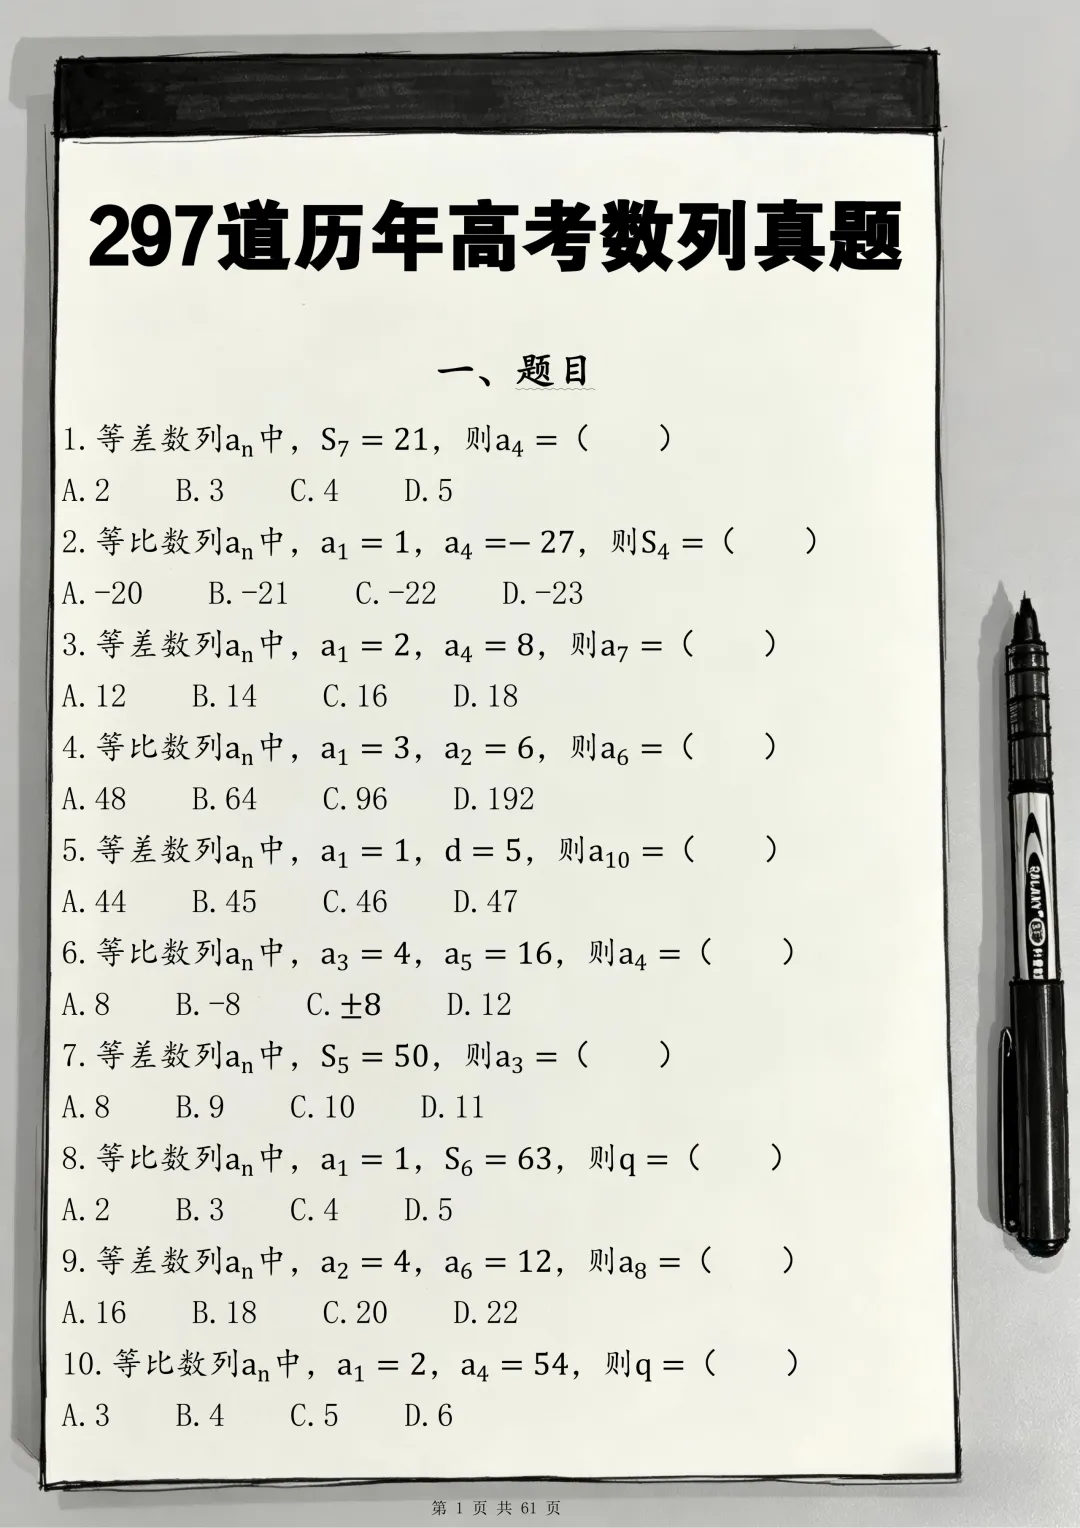 297道历年高考数列真题
一、题目
1.等差数列aₙ中，S₇ = 21，则a₄ =（　　）
A.2　B.3　C.4　D.5
2.等比数列aₙ中，a₁ = 1，a₄ =− 27，则S₄ =（　　）
A.-20　B.-21　C.-22　D.-23
3.等差数列aₙ中，a₁ = 2，a₄ = 8，则a₇ =（　　）
A.12　B.14　C.16　D.18
4.等比数列aₙ中，a₁ = 3，a₂ = 6，则a₆ =（　　）
A.48　B.64　C.96　D.192
5.等差数列aₙ中，a₁ = 1，d = 5，则a₁₀ =（　　）
A.44　B.45　C.46　D.47
6.等比数列aₙ中，a₃ = 4，a₅ = 16，则a₄ =（　　）
A.8　B.-8　C.±8　D.12
7.等差数列aₙ中，S₅ = 50，则a₃ =（　　）
A.8　B.9　C.10　D.11
8.等比数列aₙ中，a₁ = 1，S₆ = 63，则q =（　　）
A.2　B.3　C.4　D.5
9.等差数列aₙ中，a₂ = 4，a₆ = 12，则a₈ =（　　）
A.16　B.18　C.20　D.22
10.等比数列aₙ中，a₁ = 2，a₄ = 54，则q =（　　）
A.3　B.4　C.5　D.6
第 1 页 共 61 页